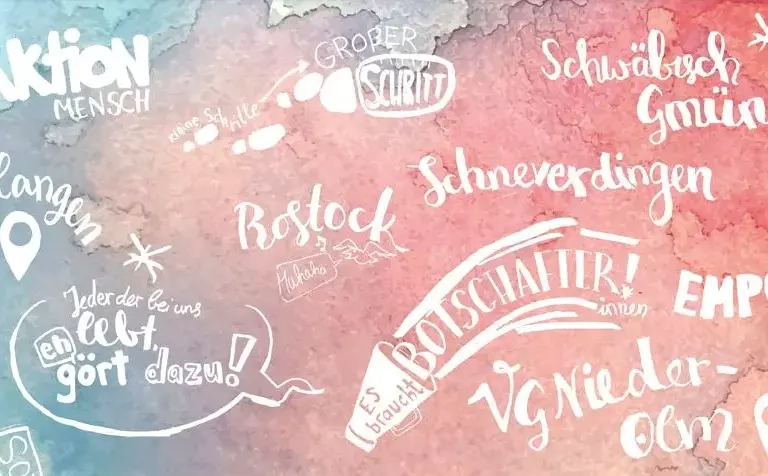 AKtiON
MENSCH
GROßER
SCHRITT
kleine Schritte
Schwäbisch
Gmün
langen
Schneverdingen
Rostock
Hahaha
BOTSCHAFTER!
innen
ES
braucht
EMP
Jeder der bei uns
lebt,
eh
gört dazu!
VG Nieder-
Olm
SO